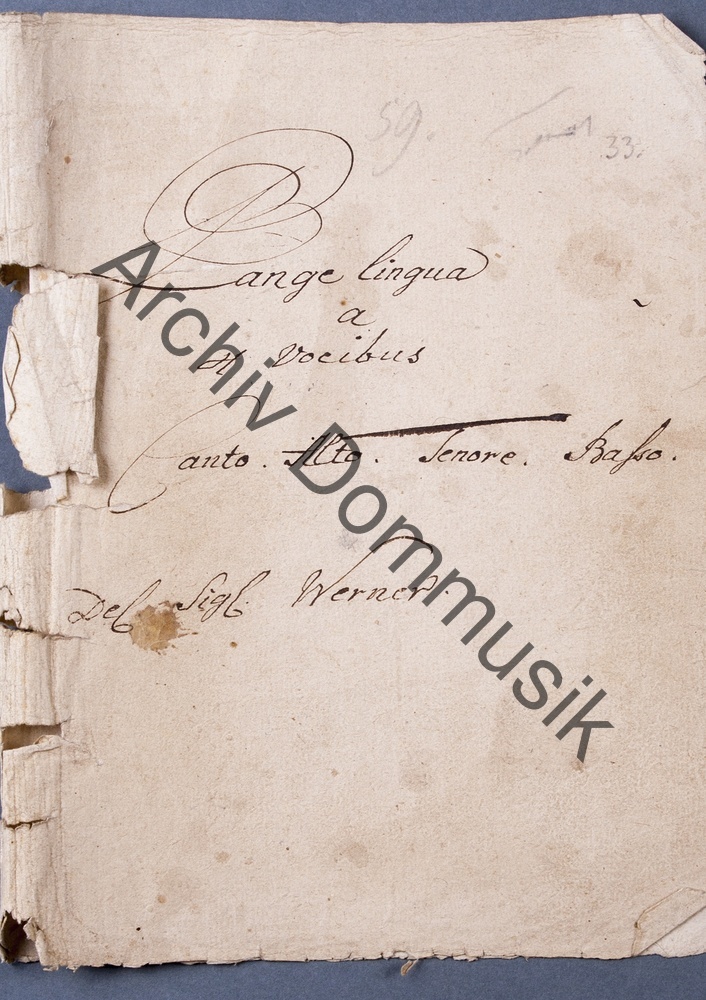 59.
33.
Pange lingua
a
4 Vocibus
Canto. Alto. Tenore. Basso.
Del Sigl. Werner.
Archiv Dommusik